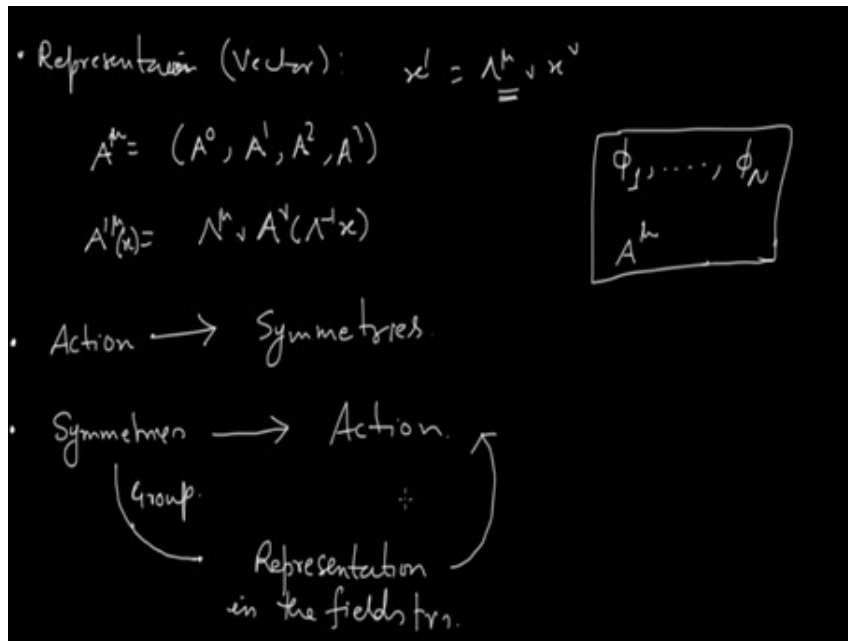 • Representation (Vector): x' = Λ^μ_ν x^ν
A^μ = (A^0, A^1, A^2, A^3)
A'^μ(x) = Λ^μ_ν A^ν(Λ^-1 x)
ϕ_1, ...., ϕ_N
A^μ
• Action → Symmetries.
• Symmetries → Action.
Group.
Representation
in the fields trs.